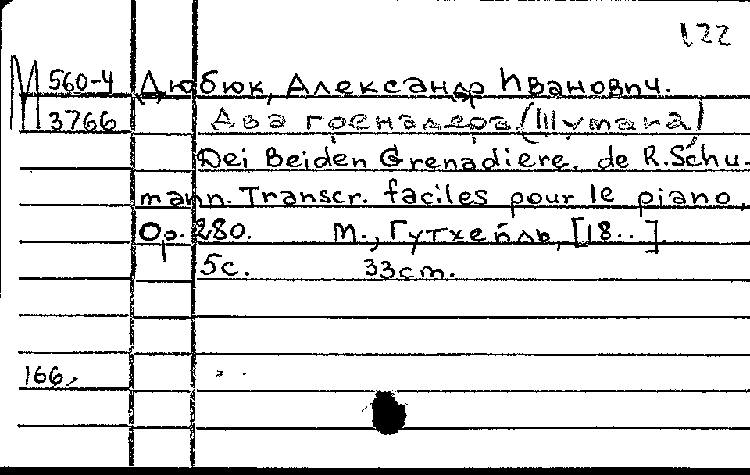 122
М 560-4 Дюбюк, Александр Иванович.
3766 Два гренадера (Шумана)
Dei Beiden Grenadiere. de R. Schu-
mann. Transcr. faciles pour le piano,
Op. 280. М., Гутхейль, [18..].
5с. 33cm.
166,